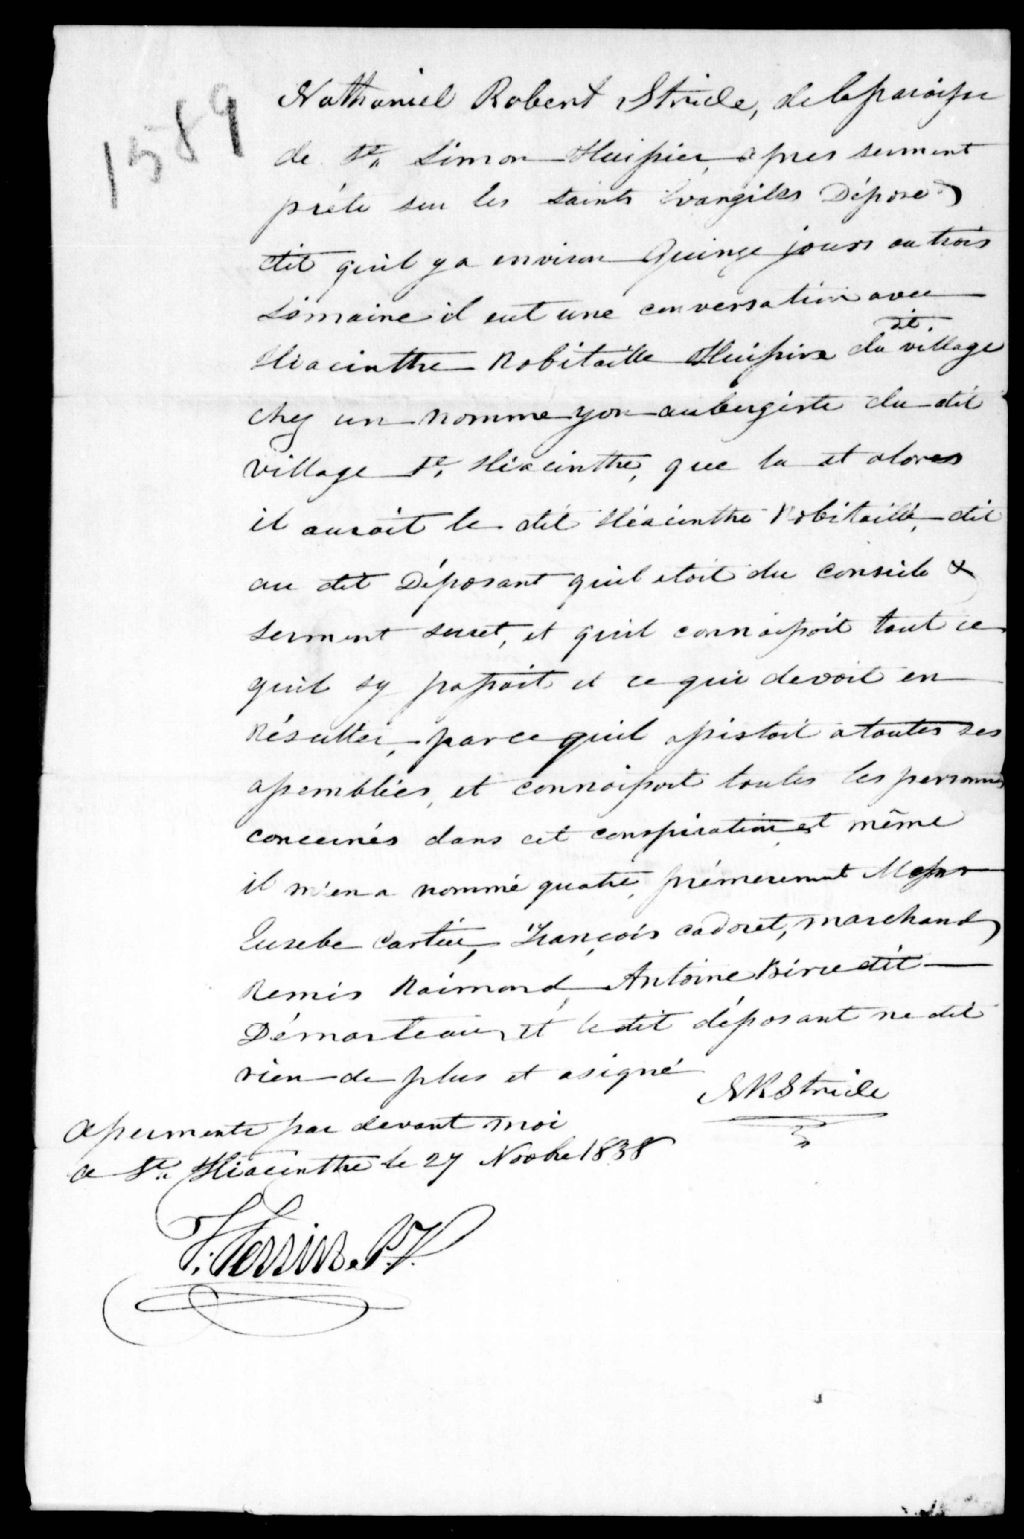 1589
Nathaniel Robert Stride, de la paroisse
de St. Simon Huissier, apres serment
prété sur les saints Evangiles Dépose &
dit quil y a environ Quinze jours ou trois
Semaine il eut une conversation avec
Hiacinthe Robitaille Huissier du dt. village
chez un nomme yon aubergiste du dit
village St. Hiacinthe, que la et alores
il auroit le dit Hiacinthe Robitaille, dit
au dit Déposant quil etoit du conseile &
serment secret, et quil connoissoit tout ce
quil sy passoit et ce qui devoit en
Résulter, parcequil assistoit a toutes ses
assemblées, et connoissoit toutes les personnes
concernés dans cet conspiration et même
il m'en a nommé quatre, prémierement Messrs
Eusebe Cartier, François Cadoret, marchand,
Remis Raimond, Antoine Birée dit
Démarteau, et le dit déposant ne dit
rien de plus et a signé
NR Stride
assermenté par devant moi
a St. Hiacinthe le 27 Novbre 1838
T. Tessier. P. J.